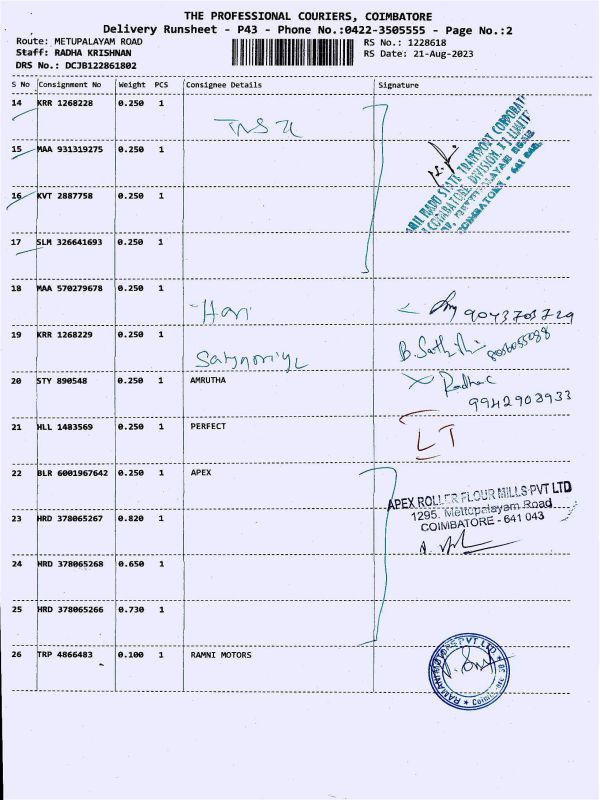 THE PROFESSIONAL COURIERS, COIMBATORE
Delivery Runsheet - P43 - Phone No.:0422-3505555 - Page No.:2
Route: METUPALAYAM ROAD RS No.: 1228618
Staff: RADHA KRISHNAN RS Date: 21-Aug-2023
DRS No.: DCJB122861802
S No Consignment No Weight PCS Consignee Details Signature
14 KRR 1268228 0.250 1
15 MAA 931319275 0.250 1
16 KVT 2887758 0.250 1
17 SLM 326641693 0.250 1
18 MAA 570279678 0.250 1
Hari
9043703729
19 KRR 1268229 0.250 1
20 STY 890548 0.250 1 AMRUTHA
Radha
9942903933
21 HLL 1483569 0.250 1 PERFECT
LT
22 BLR 6001967642 0.250 1 APEX
APEX ROLLER FLOUR MILLS PVT LTD
1295. Mettupalayam Road
COIMBATORE - 641 043
23 HRD 378065267 0.820 1
24 HRD 378065268 0.650 1
25 HRD 378065266 0.730 1
26 TRP 4866483 0.100 1 RAMNI MOTORS